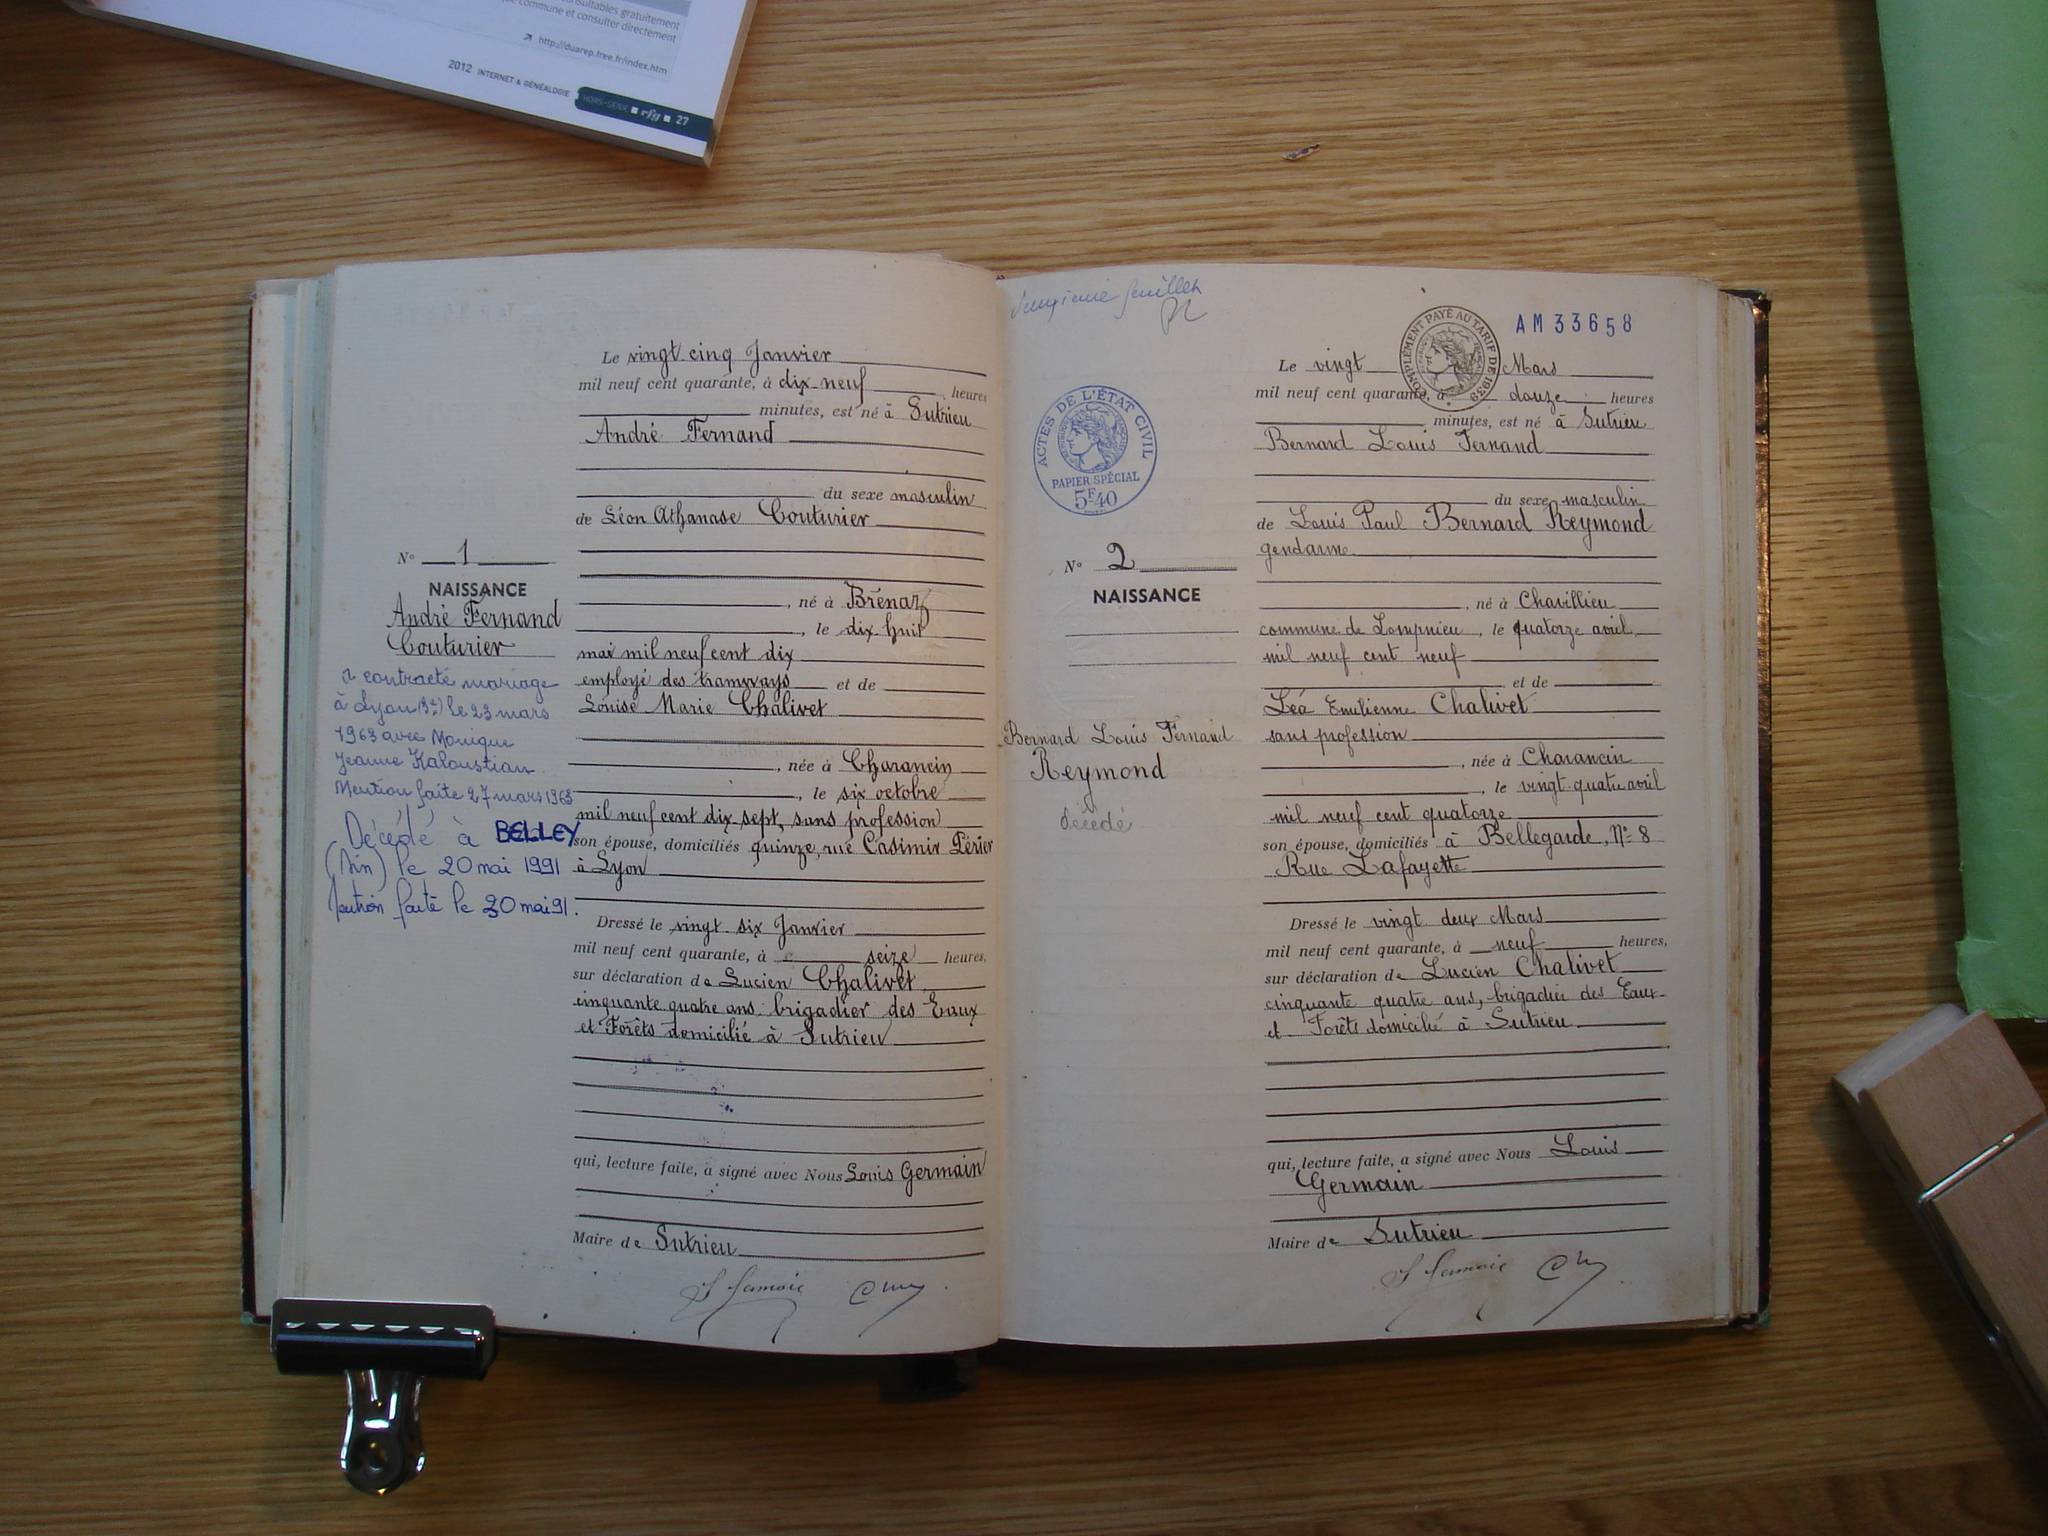 consultables gratuitement
commune et consulter directement
http://duarep.free.fr/index.htm
2012 INTERNET & GÉNÉALOGIE HORS-SÉRIE rfg 27
Le vingt cinq Janvier
mil neuf cent quarante, à dix-neuf heures
minutes, est né à Sutrieu
André Fernand
du sexe masculin
de Léon Athanase Couturier
né à Brénaz
, le dix huit
mai mil neuf cent dix
employé des tramways et de
Louise Marie Chalivet
, née à Charancin
, le six octobre
mil neuf cent dix-sept, sans profession
son épouse, domiciliés quinze, rue Casimir Périer
à Lyon
Dressé le vingt-six Janvier
mil neuf cent quarante, à seize heures,
sur déclaration de Lucien Chalivet
cinquante quatre ans brigadier des Eaux
et Forêts domicilié à Sutrieu
qui, lecture faite, a signé avec Nous Louis Germain
Maire de Sutrieu
N° 1
NAISSANCE
André Fernand
Couturier
a contracté mariage
à Lyon (3e) le 23 mars
1963 avec Monique
Jeanne Kaloustian
Mention faite 27 mars 1963
Décédé à BELLEY
(Ain) le 20 mai 1991
Mention faite le 30 mai 91.
feuillet
ACTES DE L'ÉTAT CIVIL
PAPIER SPÉCIAL
5F40
COMPLÉMENT PAYÉ AU TARIF DE 1938
AM 33658
N° 2
NAISSANCE
Bernard Louis Fernand
Reymond
décédé
Le vingt Mars
mil neuf cent quarante, à douze heures
minutes, est né à Sutrieu
Bernard Louis Fernand
du sexe masculin
de Louis Paul Bernard Reymond
gendarme
, né à Chavillieu
commune de Lompnieu, le quatorze avril
mil neuf cent neuf
et de
Léa Emilienne Chalivet
sans profession
, née à Charancin
, le vingt-quatre avril
mil neuf cent quatorze
son épouse, domiciliés à Bellegarde, N° 8
Rue Lafayette
Dressé le vingt deux Mars
mil neuf cent quarante, à neuf heures,
sur déclaration de Lucien Chalivet
cinquante quatre ans, brigadier des Eaux
et Forêts domicilié à Sutrieu
qui, lecture faite, a signé avec Nous Louis
Germain
Maire de Sutrieu